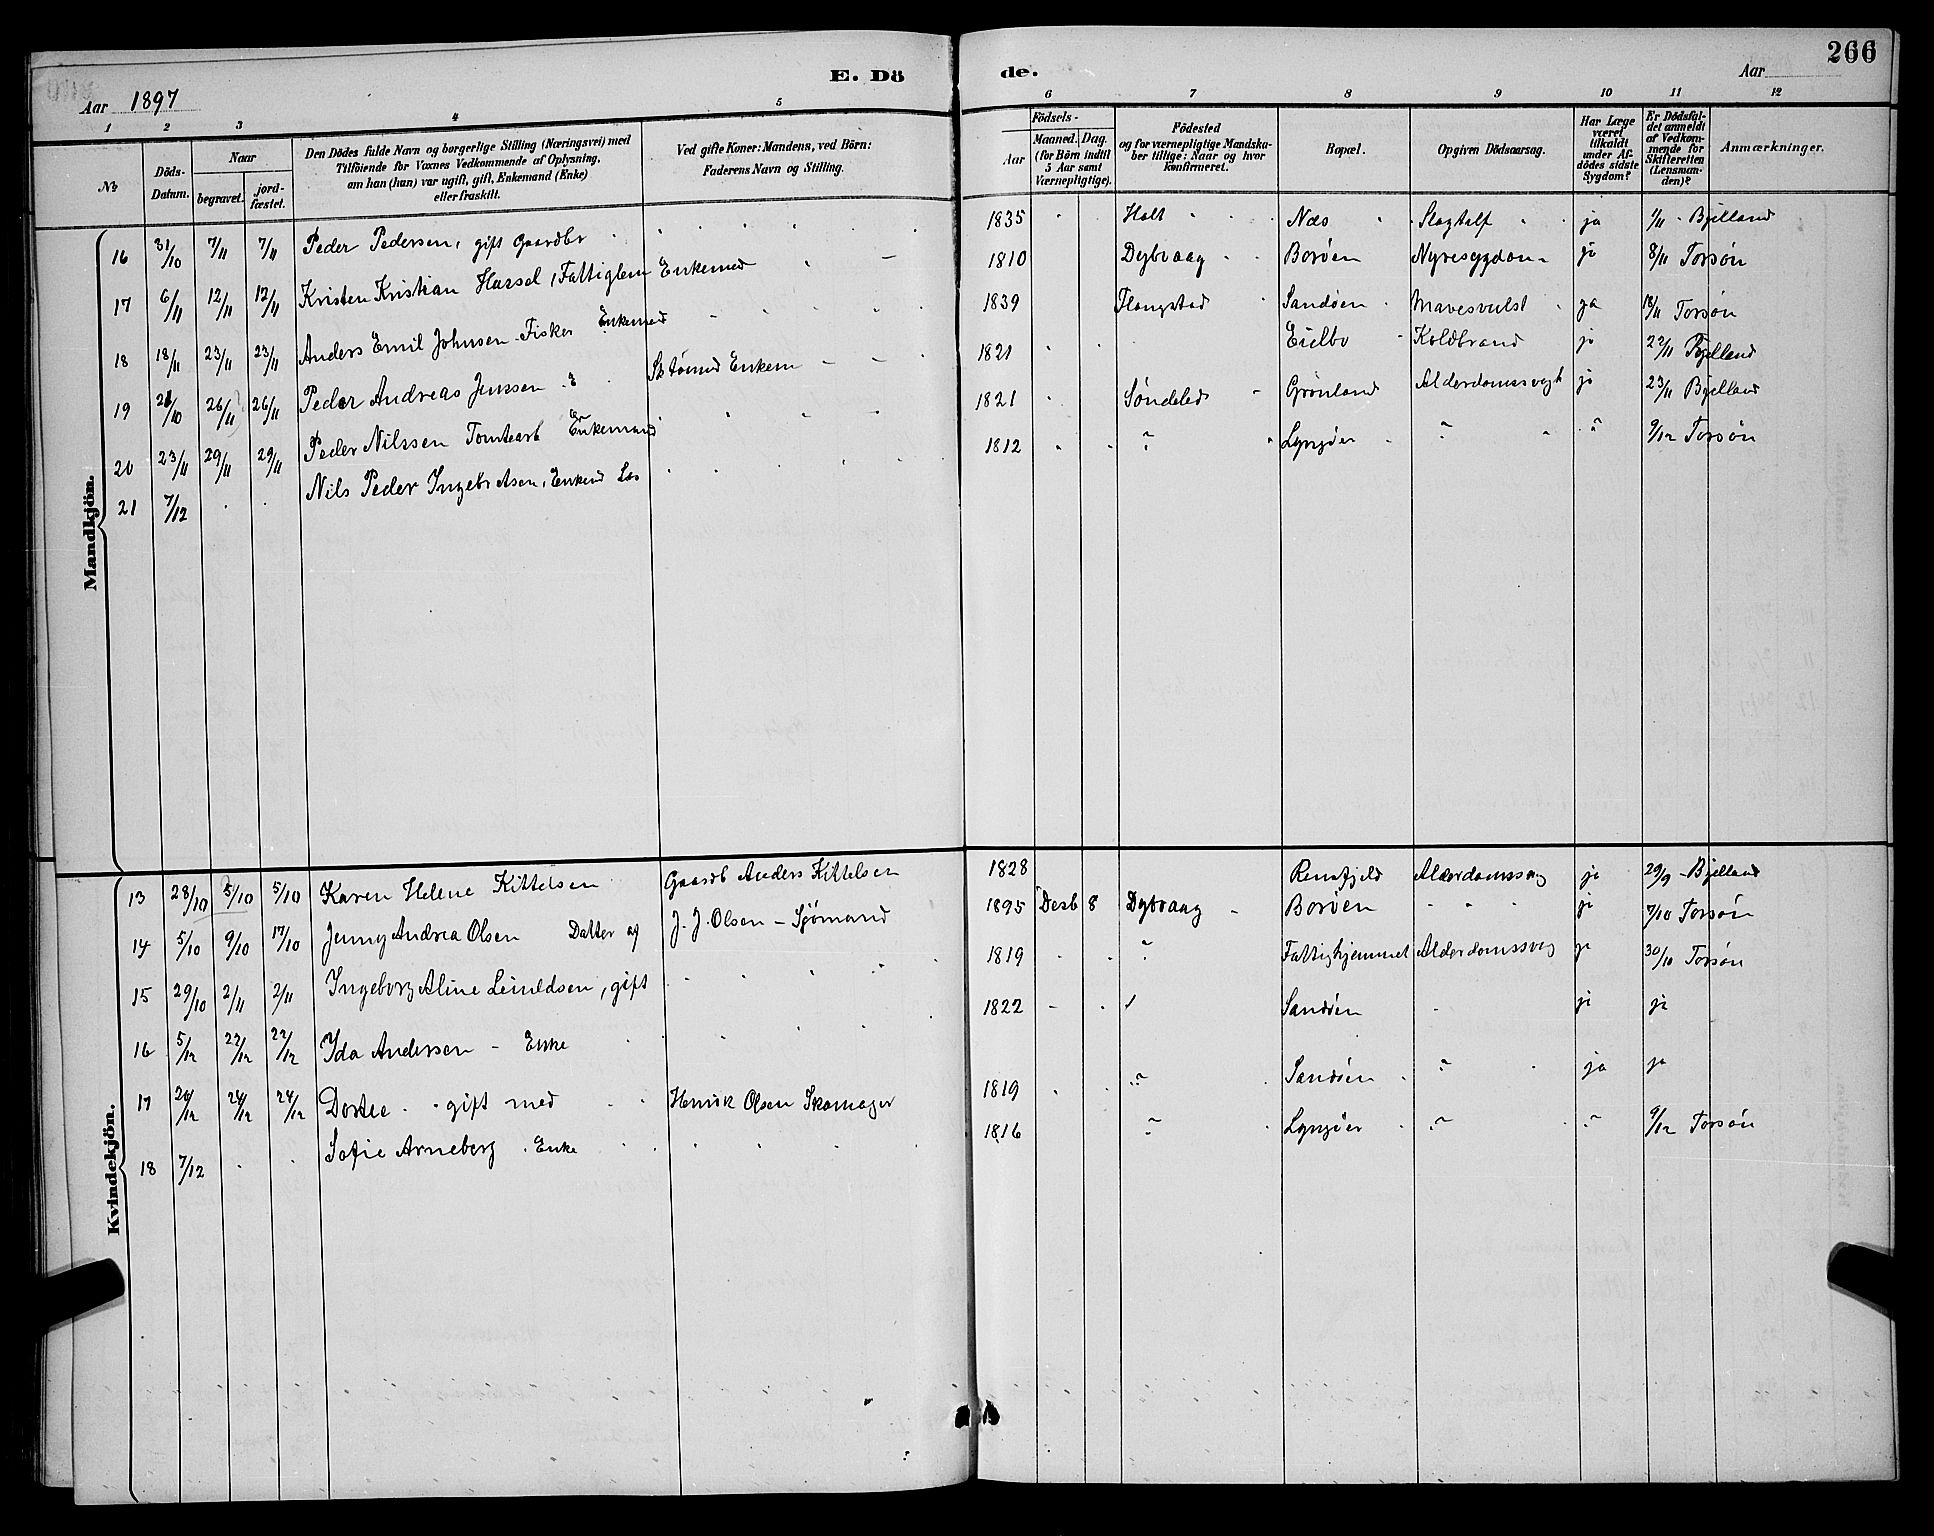 E. Dö
de.
266
Aar 1897
Aar
1 2 3 4 5 6 7 8 9 10 11 12
№
Döds-Datum.
Naar
begravet.
jord-fæstet.
Den Dödes fulde Navn og borgerlige Stilling (Næringsvei) med
Tilföiende for Voxnes Vedkommende af Oplysning,
om han (hun) var ugift, gift, Enkemand (Enke)
eller fraskilt.
Ved gifte Koner: Mandens, ved Börn:
Faderens Navn og Stilling.
Födsels-
Aar
Maaned. Dag.
(for Börn indtil
5 Aar samt
Værnepligtige).
Födested
og for værnepligtige Mandska-
ber tillige: Naar og hvor
konfirmeret.
Bopæl.
Opgiven Dödsaarsag.
Har Læge
været
tilkaldt
under Af-
dödes sidste
Sygdom?
Er Dödsfal-
det anmeldt
af Vedkom-
mende for
Skifteretten
(Lensman-
den)?
Anmærkninger.
Mandkjön.
16 31/10 7/11 7/11 Peder Pedersen, gift Gaardbr 1835 Holt Næs Slagtilf ja 1/11 Bjelland
17 6/11 12/11 12/11 Kristen Kristian Hassel, Fattiglem Enkemd 1810 Dybvaag Borøen Nyresygdom ja 8/11 Torsøn
18 18/11 23/11 23/11 Anders Emil Johnsen Fisker Enkemd 1839 Flangstad Sandøen Mavesvulst ja 18/11 Torsøn
19 26/11 26/11 Peder Andreas Jenssen Enkem 1821 Eidbo Koldbrand ja 22/11 Bjelland
20 23/11 29/11 29/11 Peder Nilssen Tomtearb Enkemand 1821 Søndeled Grønland Alderdomssvagh ja 23/11 Bjelland
21 7/12 Nils Peder Ingebretsen, Enkemd Los 1812 " Lyngøer " " 9/12 Torsøn
Kvindekjön.
13 28/10 5/10 5/10 Karen Helene Kittelsen Gaardb Anders Kittelsen 1828 Rensfjeld Alderdomssvag ja 29/9 Bjelland
14 5/10 9/10 17/10 Jenny Andrea Olsen Datter af J. J. Olsen - Sjömand 1895 Desb 8 Dybvaag Borøen ja 7/10 Torsøn
15 29/10 2/11 2/11 Ingeborg Aline gift 1819 " Fattighjemmet Alderdomssvag ja 30/10 Torsøn
16 5/12 22/12 22/12 Ida Andersen - Enke 1822 Sandøen ja ja
17 20/12 24/12 24/12 Dortee gift med Henrik Olsen Skomager 1819 " Sandøen " ja ja
18 7/12 Sofie Arneberg Enke 1816 " Lyngøer " " 9/12 Torsøn